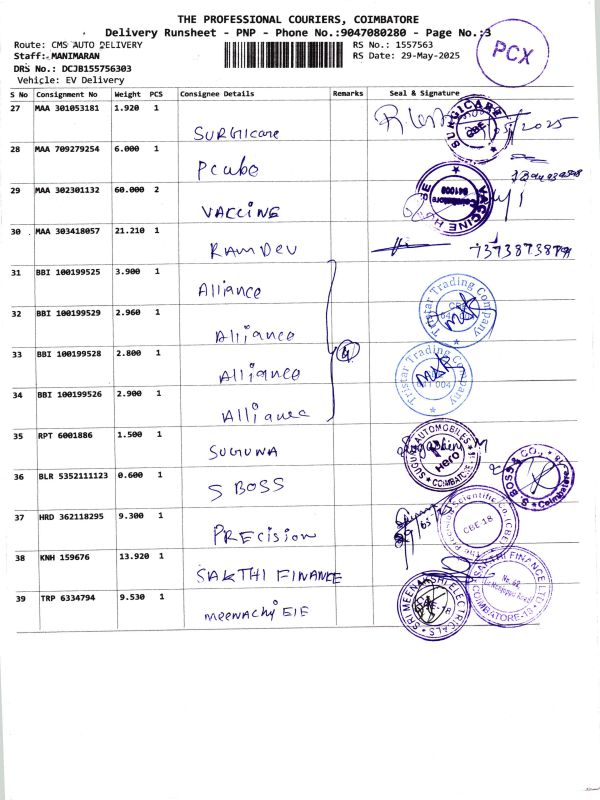 THE PROFESSIONAL COURIERS, COIMBATORE
Delivery Runsheet - PNP - Phone No.:9047080280 - Page No.:3
PCX
Route: CMS AUTO DELIVERY RS No.: 1557563
Staff: MANIMARAN RS Date: 29-May-2025
DRS No.: DCJB155756303
Vehicle: EV Delivery
S No Consignment No Weight PCS Consignee Details Remarks Seal & Signature
27 MAA 301053181 1.920 1 SURGICARE
SURGICARE CBE
28 MAA 709279254 6.000 1 Pcube
29 MAA 302301132 60.000 2 VACCINE
VACCINE Coimbatore 641009
30 MAA 303418057 21.210 1 RAMDEV
31 BBI 100199525 3.900 1 Alliance
Tristar Trading Company
32 BBI 100199529 2.960 1 Alliance
33 BBI 100199528 2.800 1 Alliance
4
Tristar Trading Company
34 BBI 100199526 2.900 1 Alliance
35 RPT 6001886 1.500 1 SUGUNA
SUGUNA AUTOMOBILES Hero COIMBATORE
36 BLR 5352111123 0.600 1 S BOSS
S. BOSS & CO. Coimbatore
37 HRD 362118295 9.300 1 PRECISION
The Precision Scientific Co. (CBE) CBE-18
38 KNH 159676 13.920 1 SAKTHI FINANCE
SAKTHI FINANCE LTD No. 62 COIMBATORE-18
39 TRP 6334794 9.530 1 meenachi EIE
SRI MEENAKSHI ELECTRICALS CBE-18